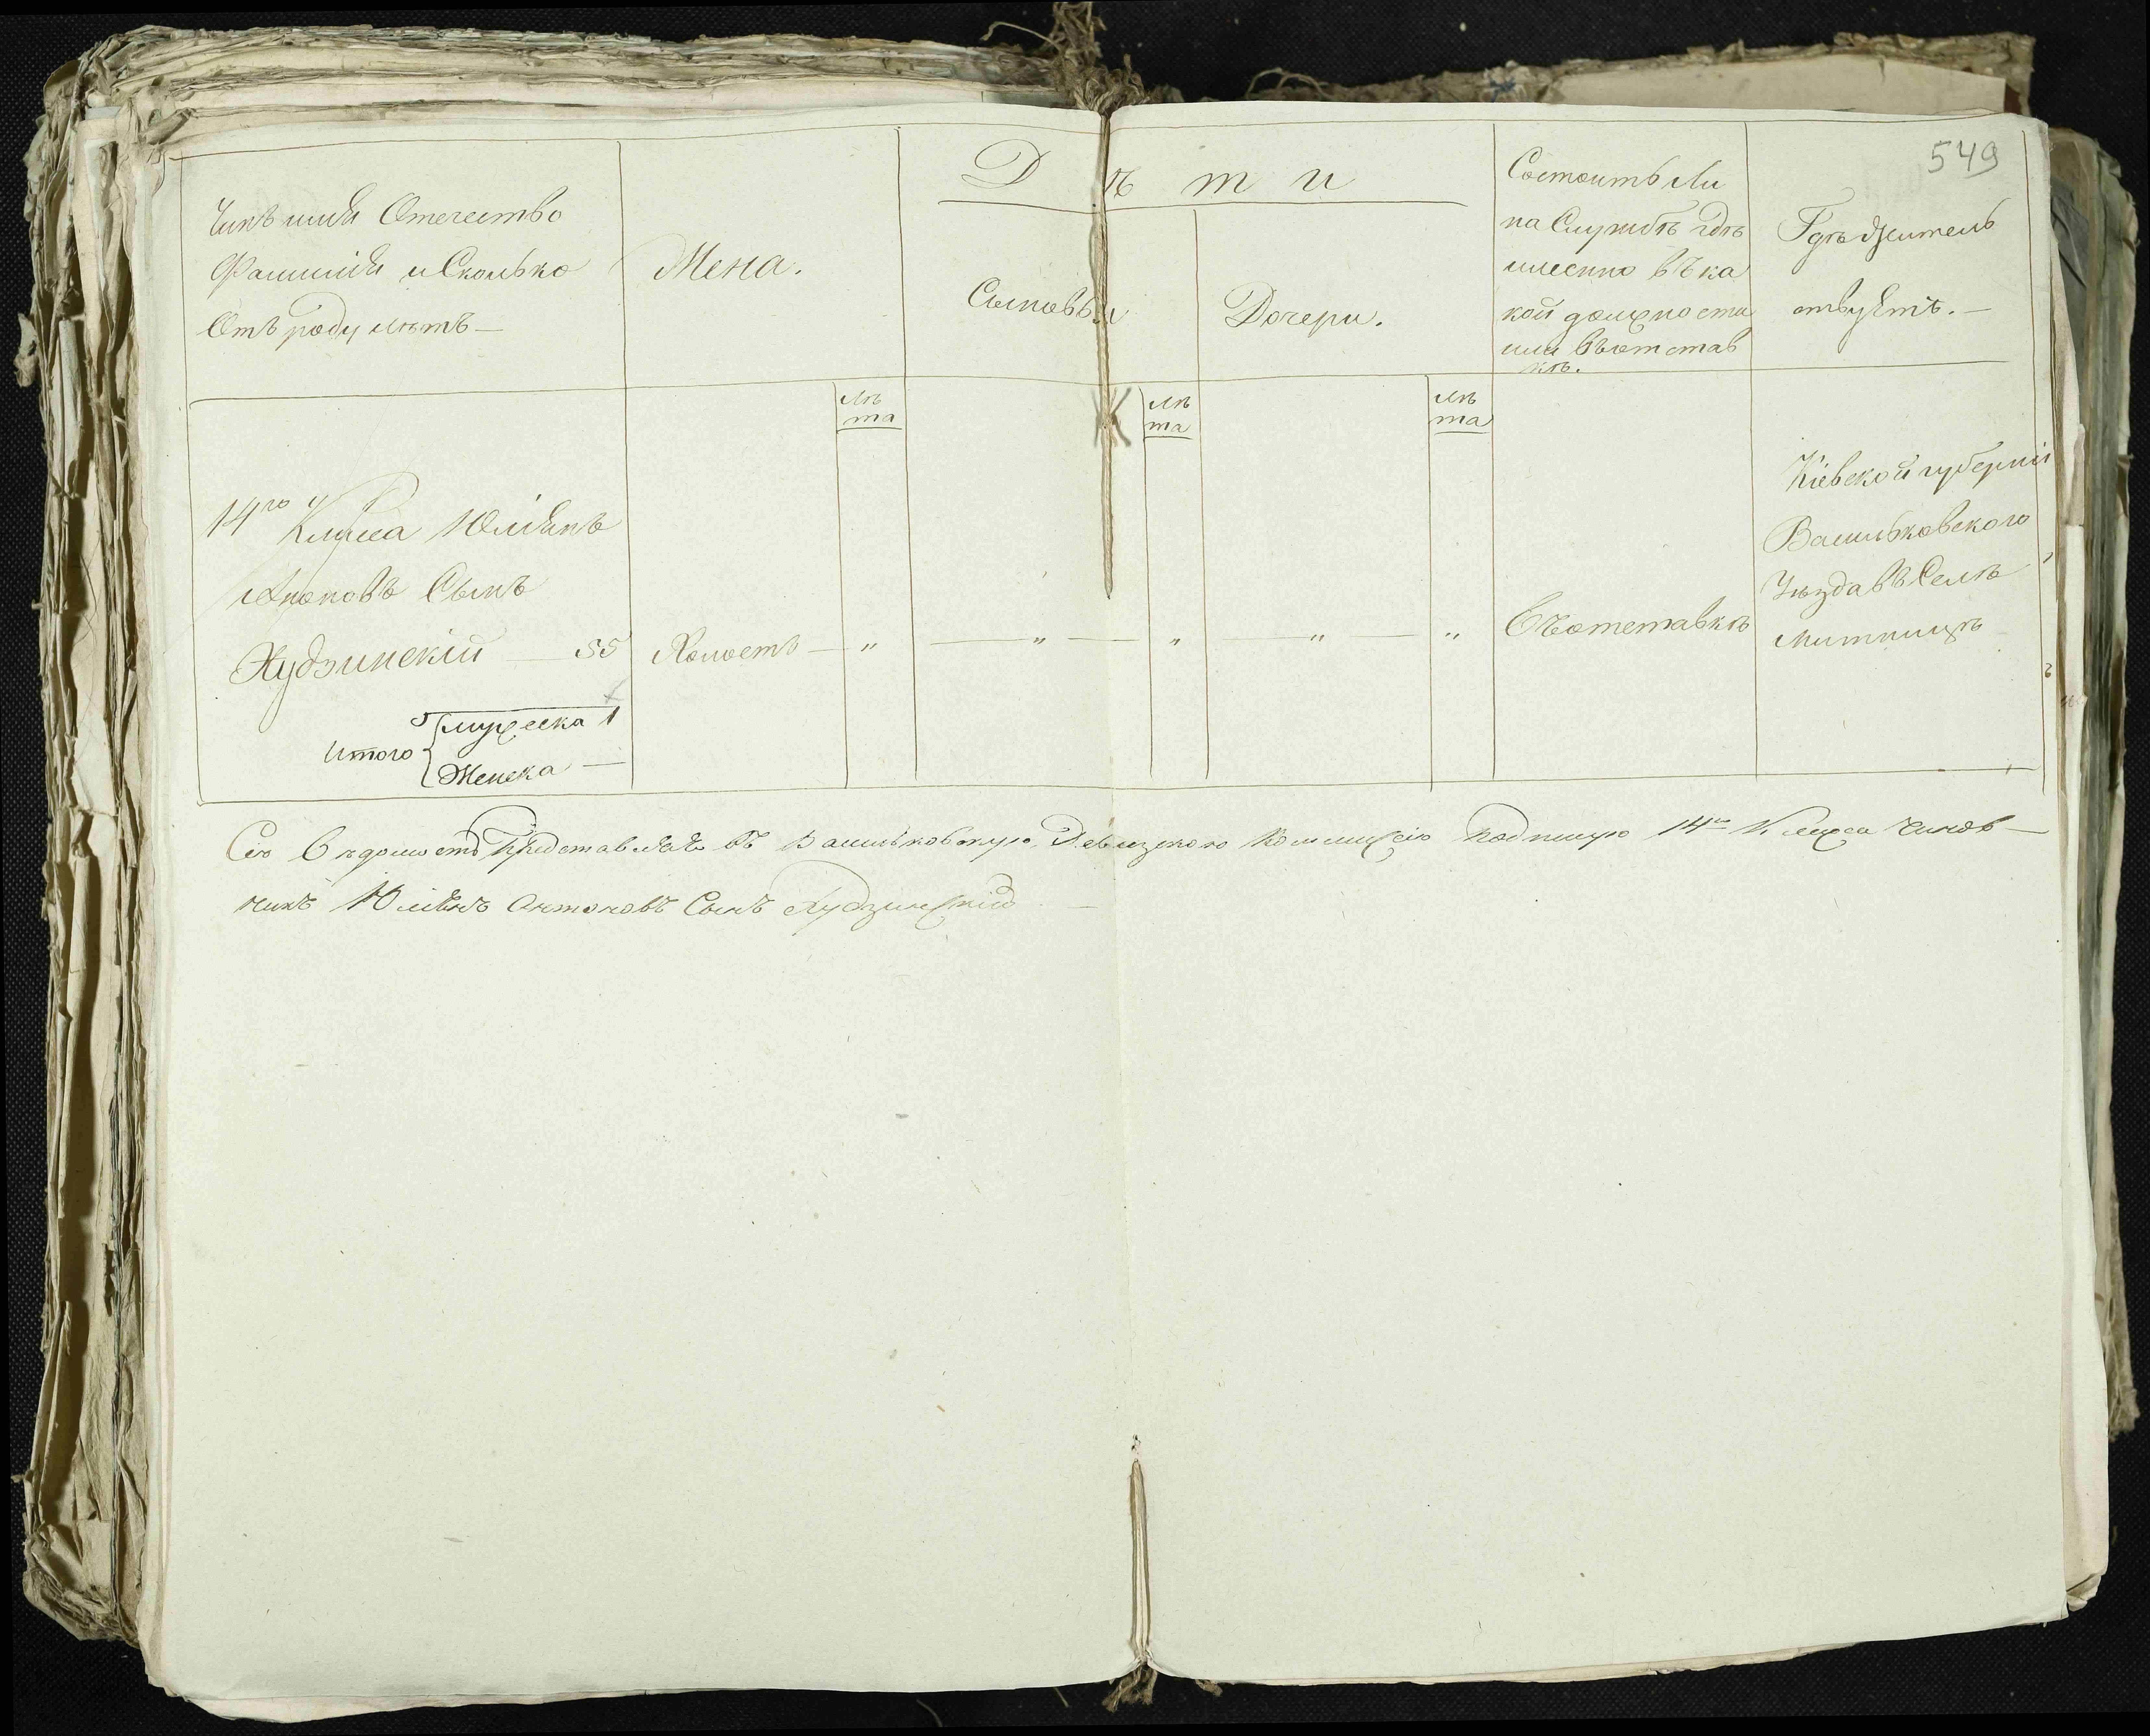 549
Чинъ имя Отечество
Фамилія и Сколько
Отъ роду лѣтъ —
Жена.
Дѣти
Сыновья
Дочери.
Состоитъ Ли
на Службѣ гдѣ
именно въ ка
кой должности
или въ отстав
кѣ.
Гдѣ Жител
ствуетъ. —
лѣ
та
лѣ
та
лѣ
та
14го Класса Юліянъ
Антоновъ Сынъ
Худзинскій — 55
Холостъ — „
— „ —
„
— „ —
„
Въ отставкѣ
Кіевской губерніи
Васильковского
Уѣзда въ Селѣ
Митницѣ
Итого
мужеска 1
Женска —
Сію Вѣдомость Представляя въ Васильковскую Ревизскую Коммисію подпишусь 14го Класса Чинов—
никъ Юліянъ Антоновъ Сынъ Худзинскій —